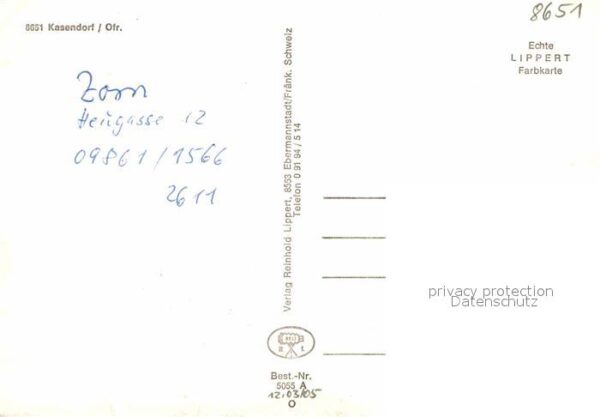 8651 Kasendorf / Ofr.
8651
Echte
LIPPERT
Farbkarte
Zorn
Heugasse 12
09861/1566
2611
Verlag Reinhold Lippert, 8553 Ebermannstadt/Fränk. Schweiz
Telefon 0 91 94 / 5 14
privacy protection
Datenschutz
R L
Best.-Nr.
5055 A
12.03/05
O